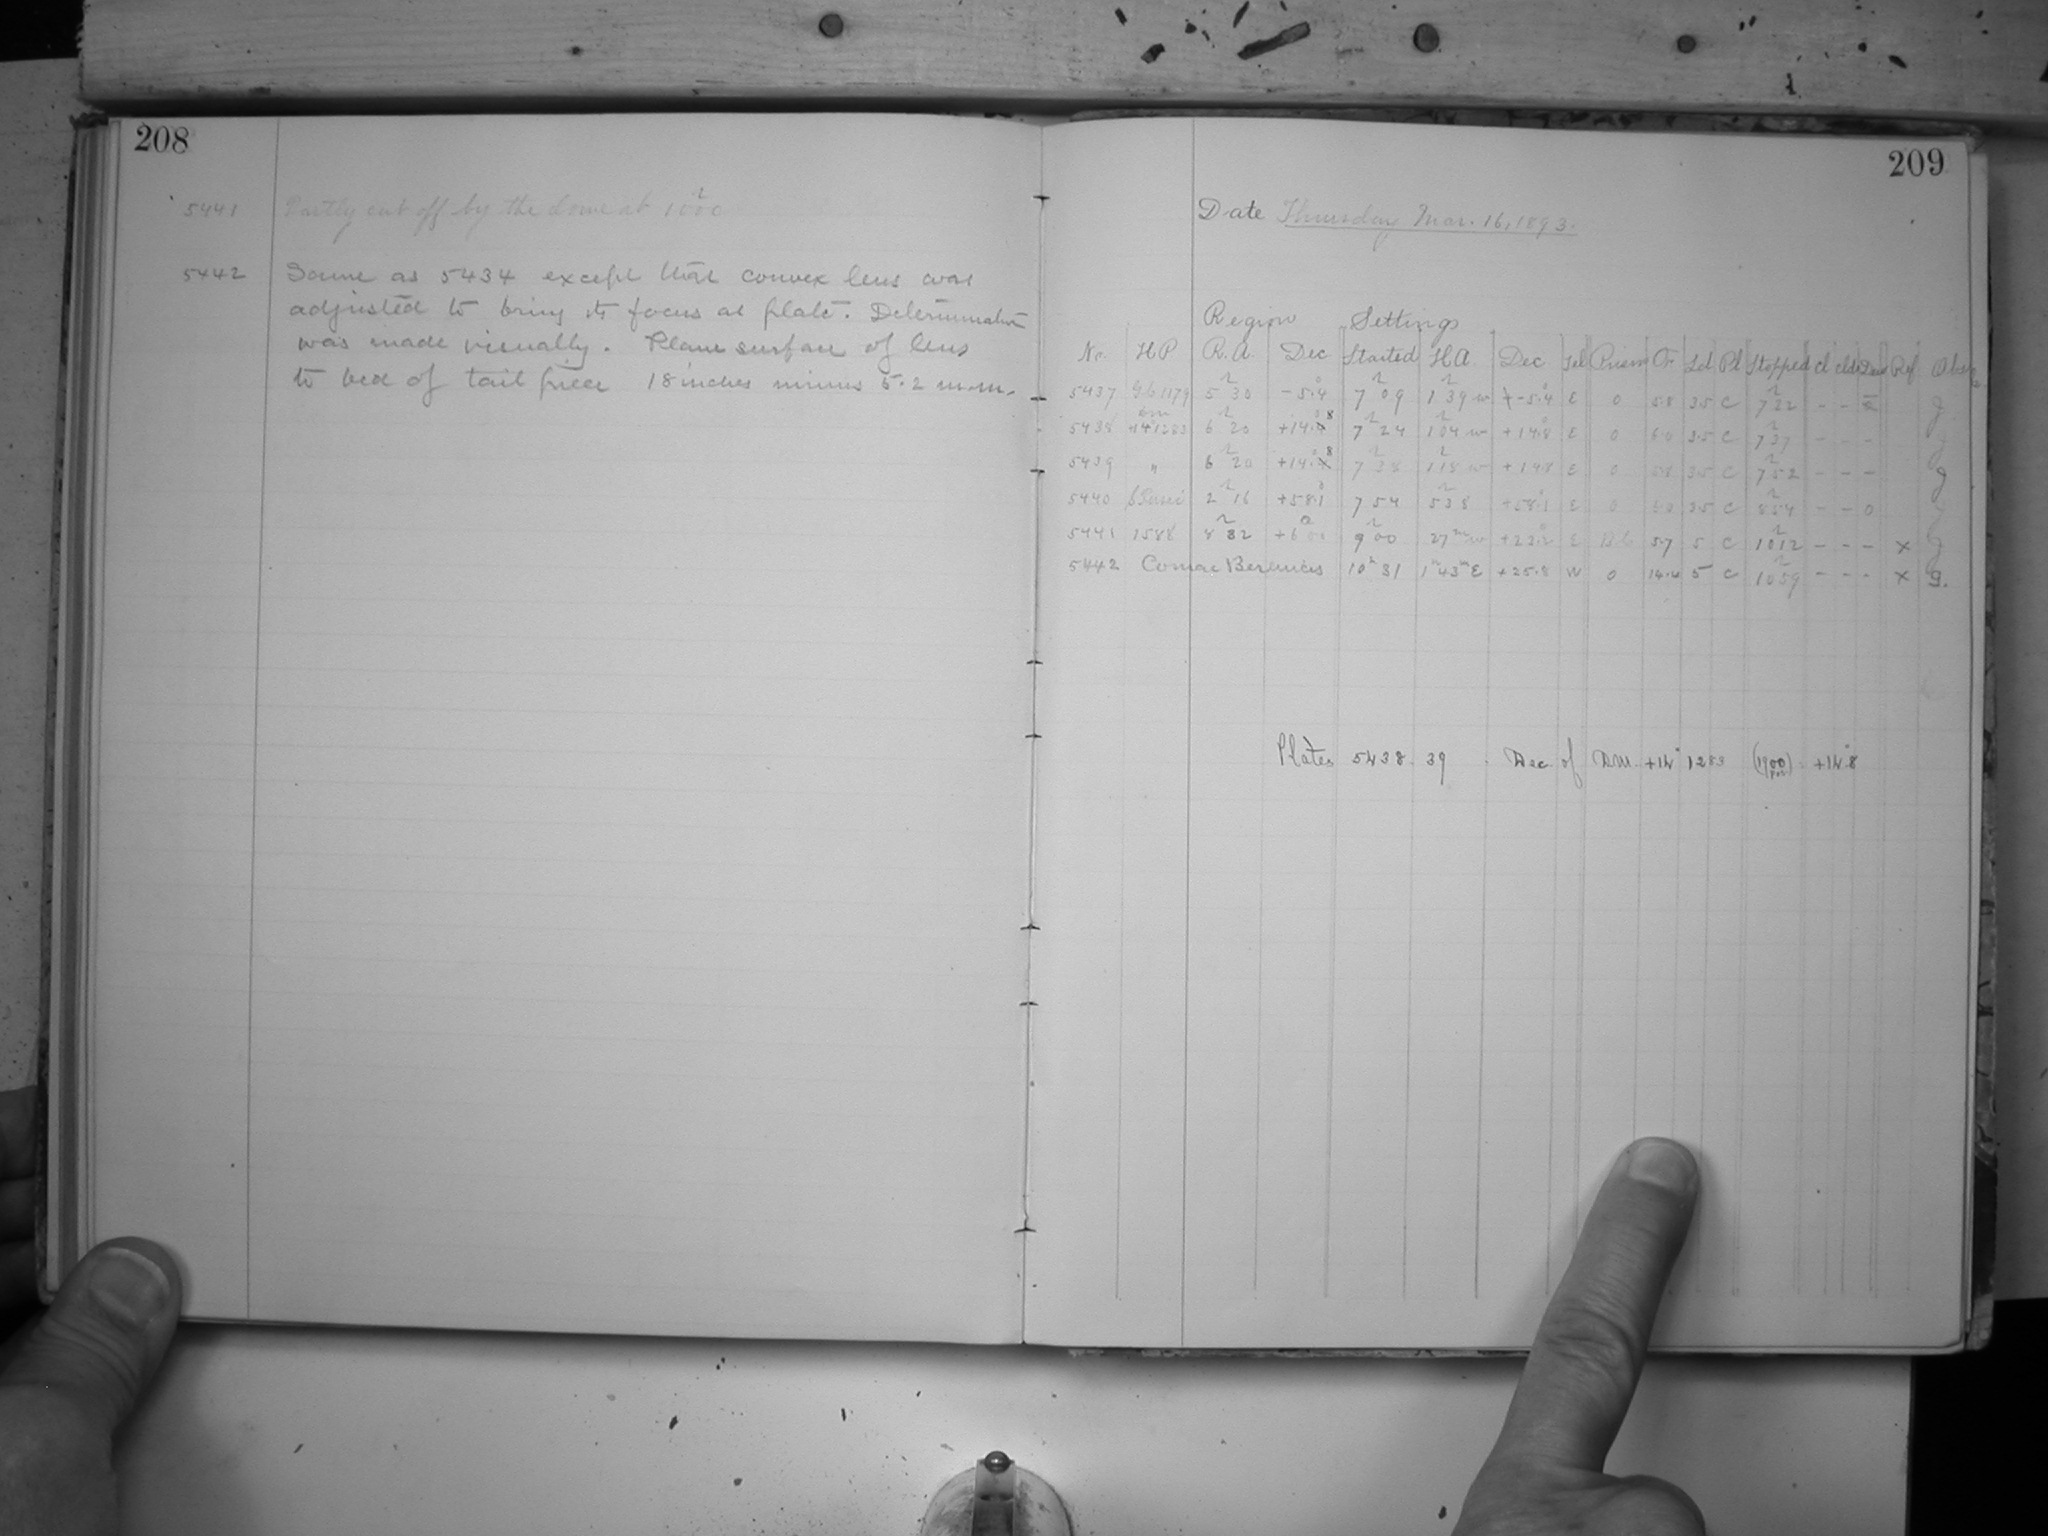 208
5441 Partly cut off by the dome at 10h00
5442 Same as 5434 except that convex lens was
adjusted to bring to focus at plate. Determination
was made visually. Plane surface of lens
to bed of tail piece 18 inches minus 5.2 m.m.
209
Date Thursday Mar. 16, 1893.
Region Settings
No. H P R.A. Dec Started H A Dec Tel Prism Or Ld Pl Stopped Cl Ref Obs
5437 1179 5h30 -5.4 7h09 1h39 w -5.4 E 0 5.8 3.5 C 7h22 - - g
5438 +14°1283 6h20 +14.8 7h24 1h04 w +14.8 E 0 3.5 C 7h37 - - - g
5439 " 6h20 +14.8 7h38 1h18 w +14.8 E 0 5.8 3.5 C 7h52 - - - g
5440 2h16 +58.1 7 54 5h38 +58.1 E 0 3.5 C 8h54 - - 0 g
5441 1588 8h32 9h00 27m w E 5.7 5 C 10h12 - - - x g
5442 Comae Berenices 10h31 1h43m E +25.8 W 0 14.4 5 C 10h59 - - - x g.
Plates 5438. 39 . Dec. of DM. +14° 1283 (1900 pos) . +14°.8